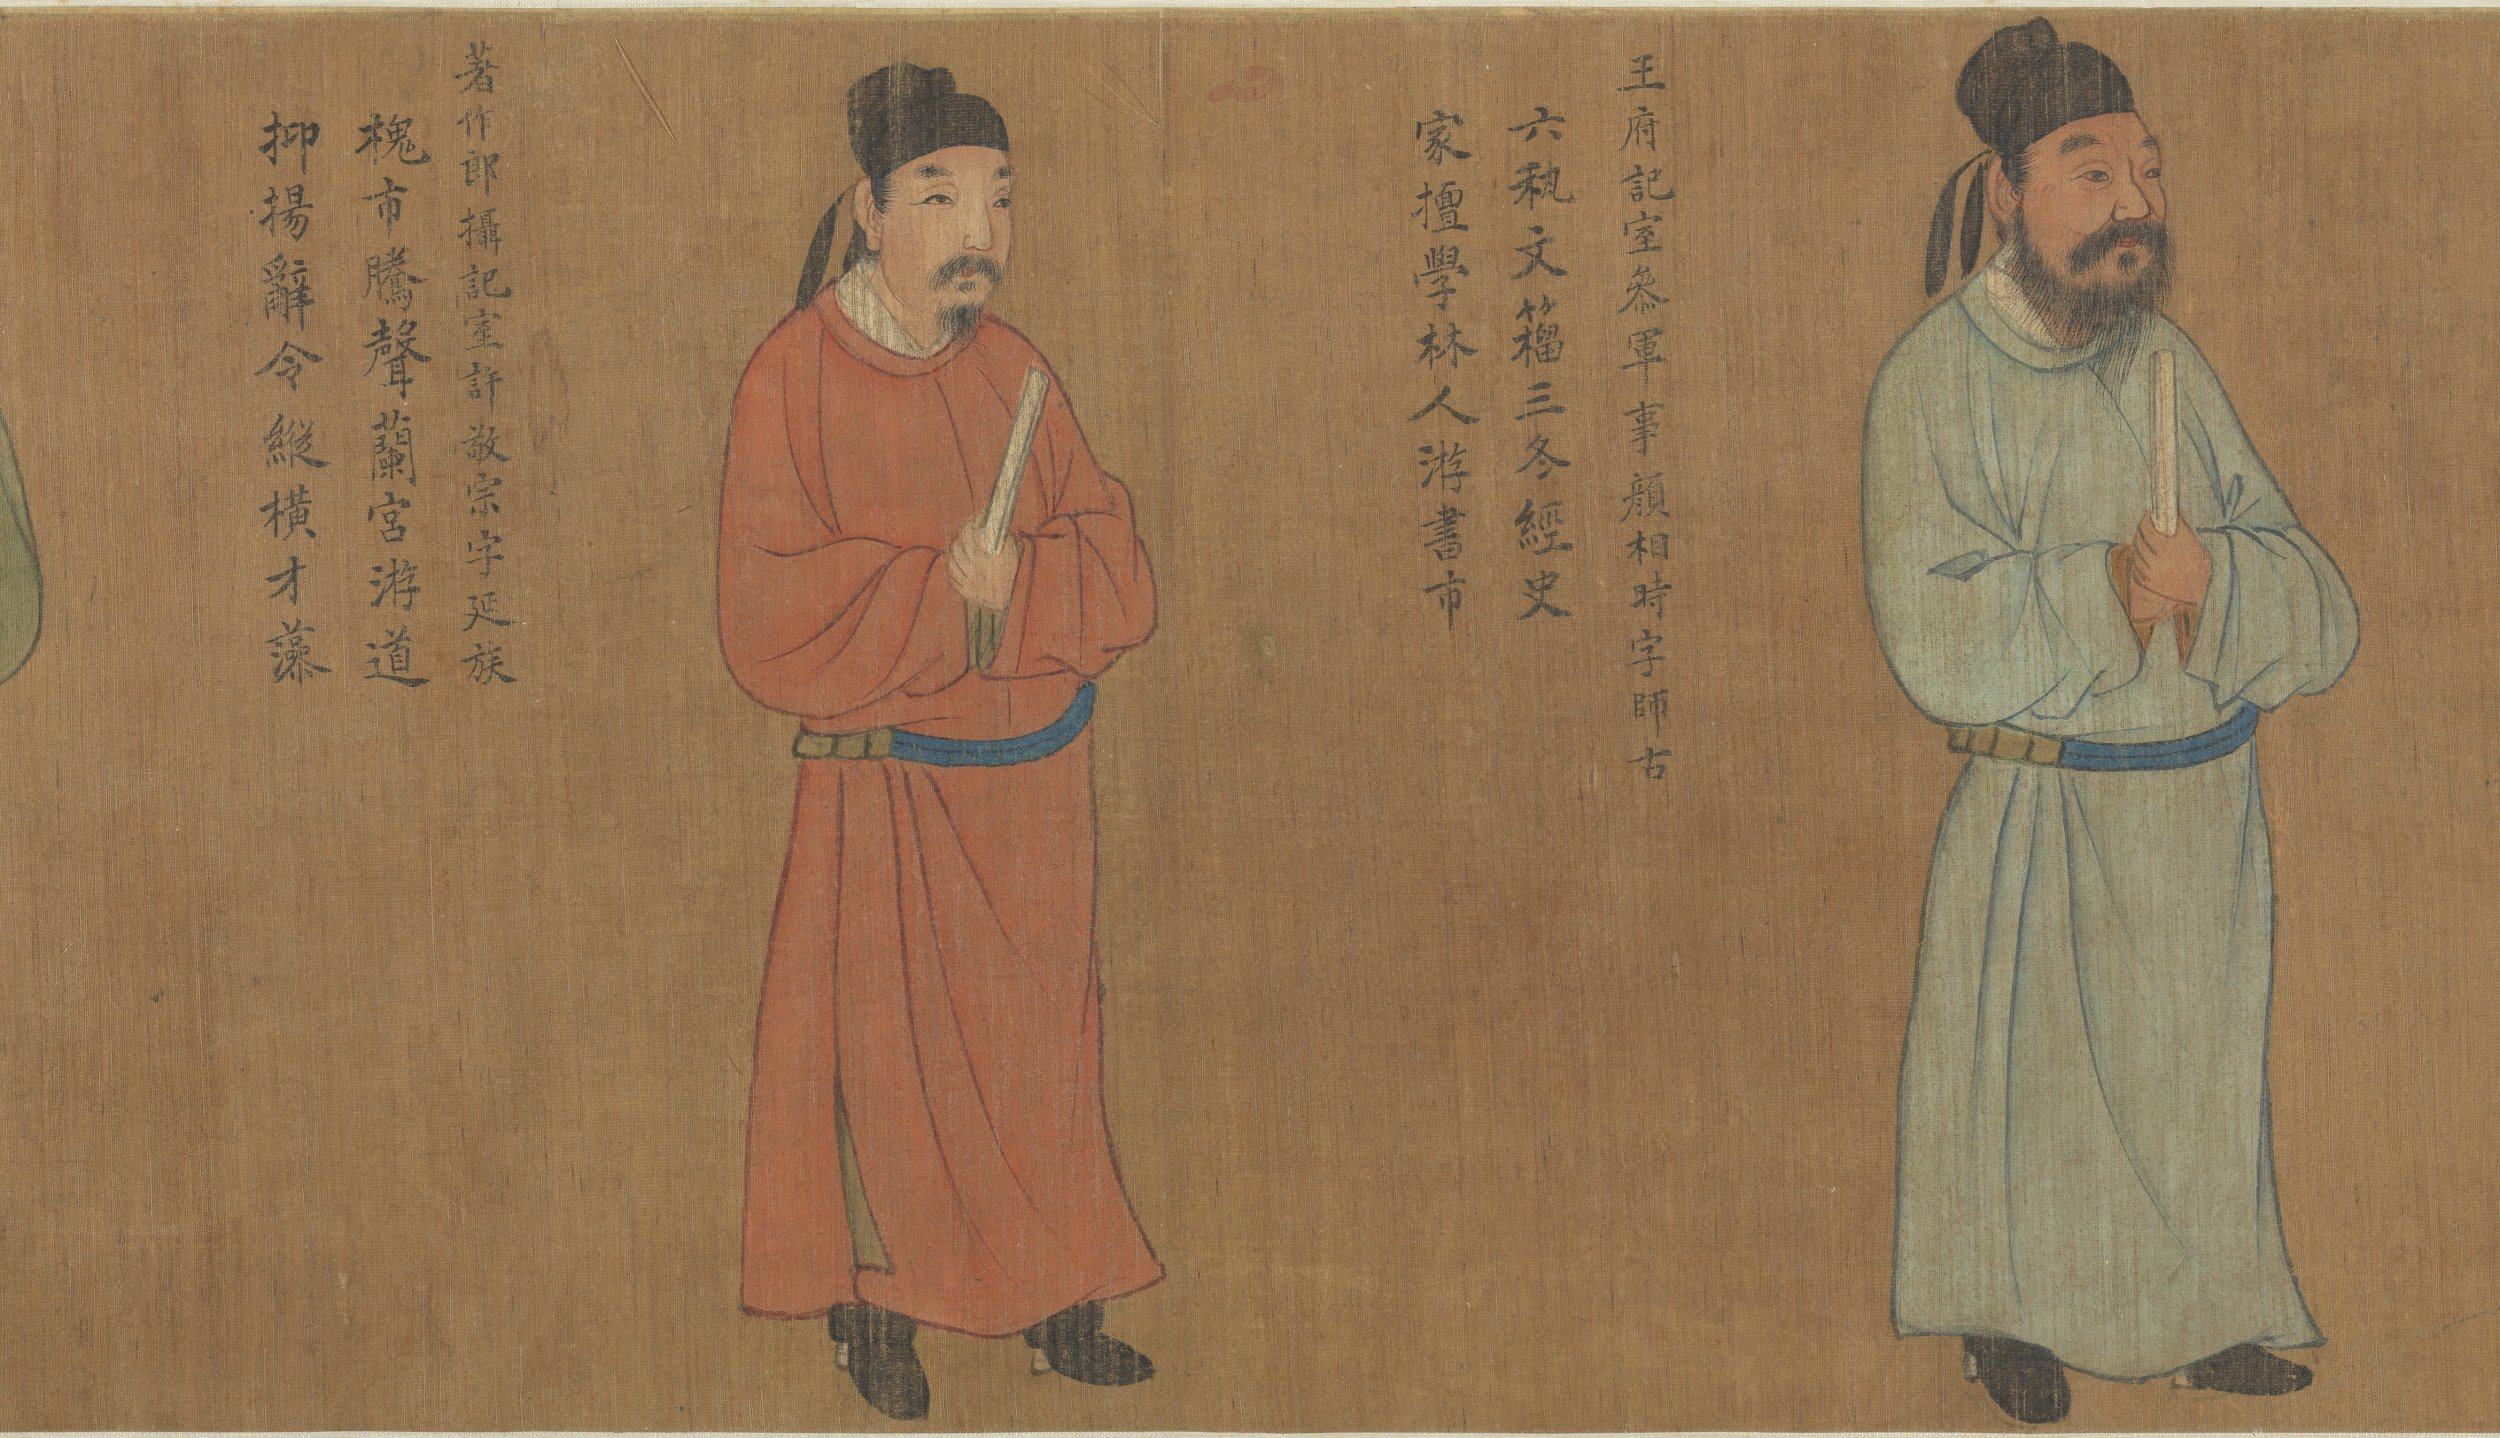 王府記室叅軍事顔相時字師古
六秇文籕三冬經史
家擅學林人游書市
著作郎攝記室許敬宗字延族
槐市騰聲蘭宮游道
抑揚辭令縱橫才藻